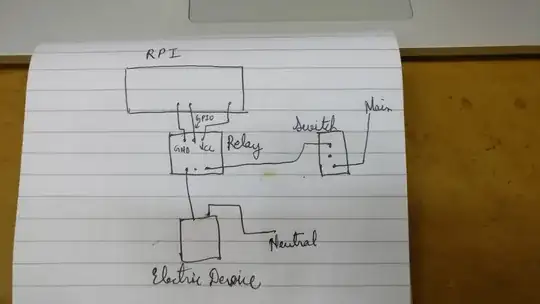 RPI
GPIO
Main
Switch
GND VCC Relay
Neutral
Electric Device